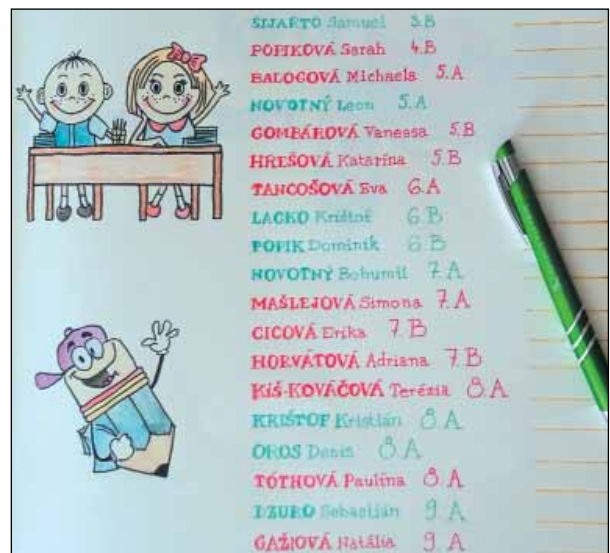 SIJARTO Samuel 3.B
POPIKOVÁ Sarah 4.B
BALOGOVÁ Michaela 5.A
NOVOTNÝ Leon 5.A
GOMBÁROVÁ Vanessa 5.B
HREŠOVÁ Katarína 5.B
TANCOŠOVÁ Eva 6.A
LACKO Krištof 6.B
POPIK Dominik 6.B
NOVOTNÝ Bohumil 7.A
MAŠLEJOVÁ Simona 7.A
CICOVÁ Erika 7.B
HORVÁTOVÁ Adriana 7.B
KIŠ-KOVÁČOVÁ Terézia 8.A
KRIŠTOF Kristián 8.A
OROS Denis 8.A
TÓTHOVÁ Paulína 8.A
DZURO Sebastián 9.A
GAŽIOVÁ Natália 9.A